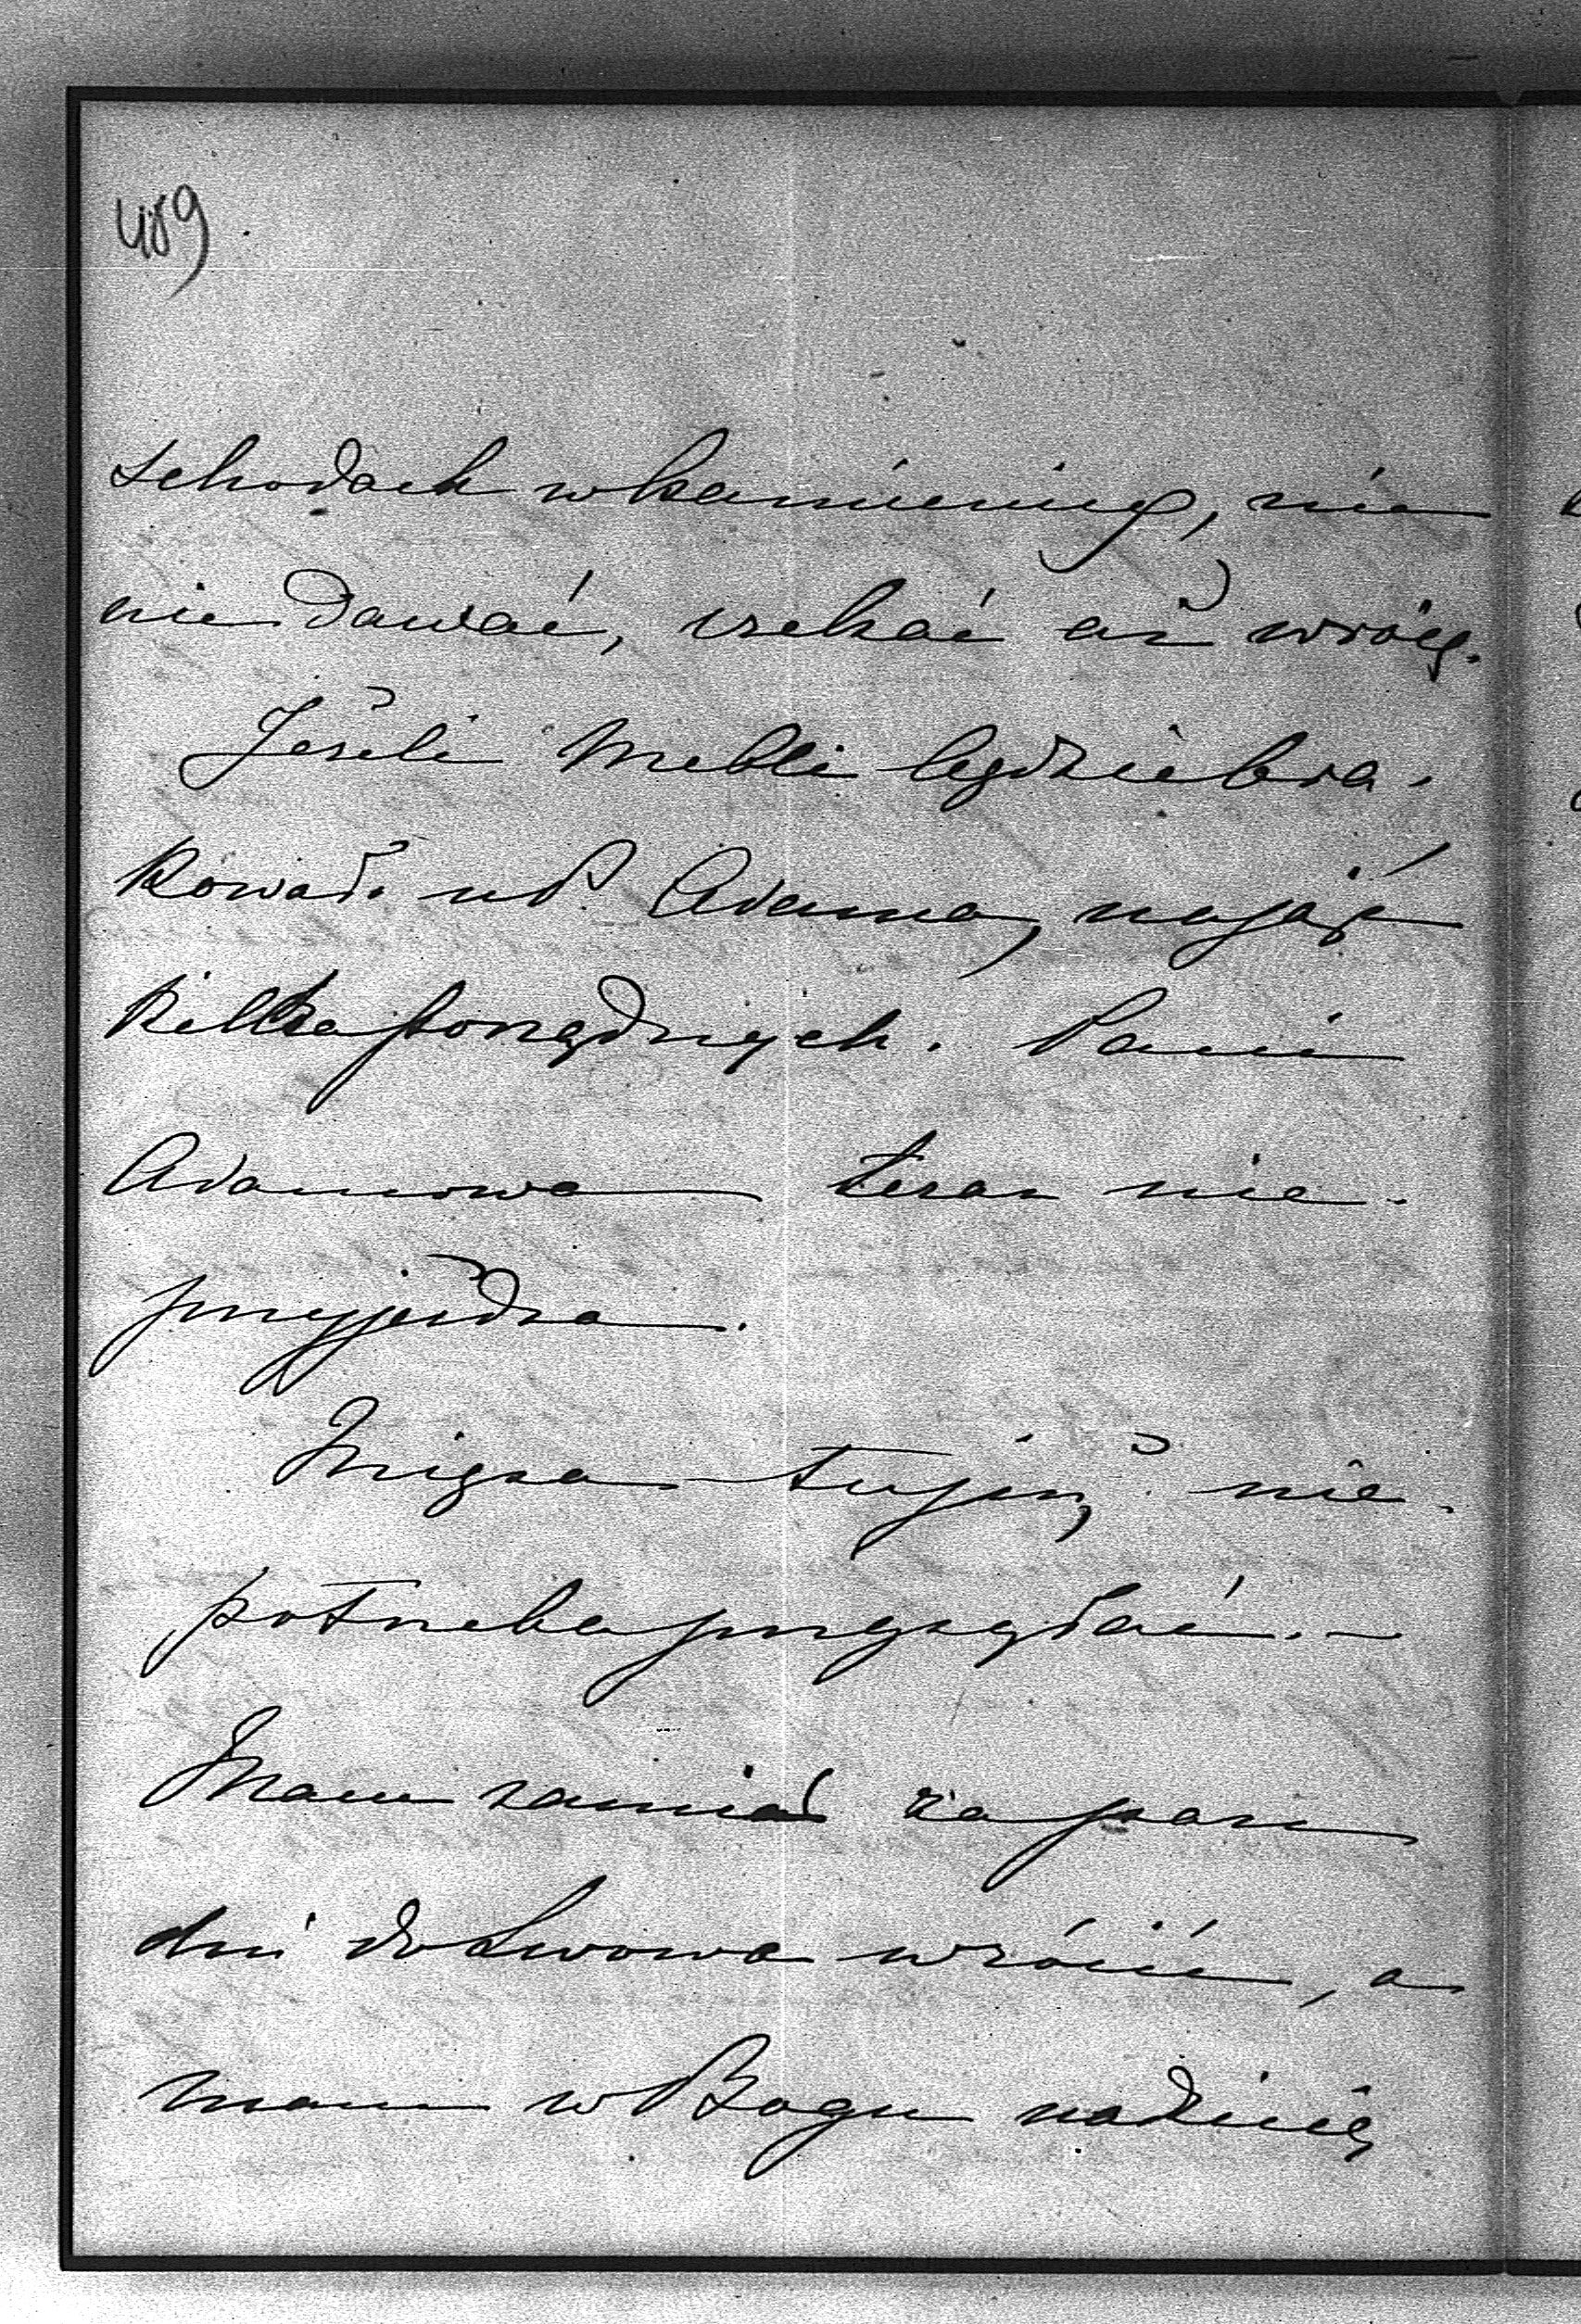 489
schodach w kamienicy, nic
nie dawać, czekać aż wrócę.
Jeżeli mebli będzie bra-
kować u P. Adama, nająć
kilka porządnych. Pani
Adamowa teraz nie
przyjeżdża.
Mięsa tu już nie
potrzeba przysyłać. —
Mam zamiar za parę
dni do Lwowa wrócić, a
mam w Bogu nadzieję